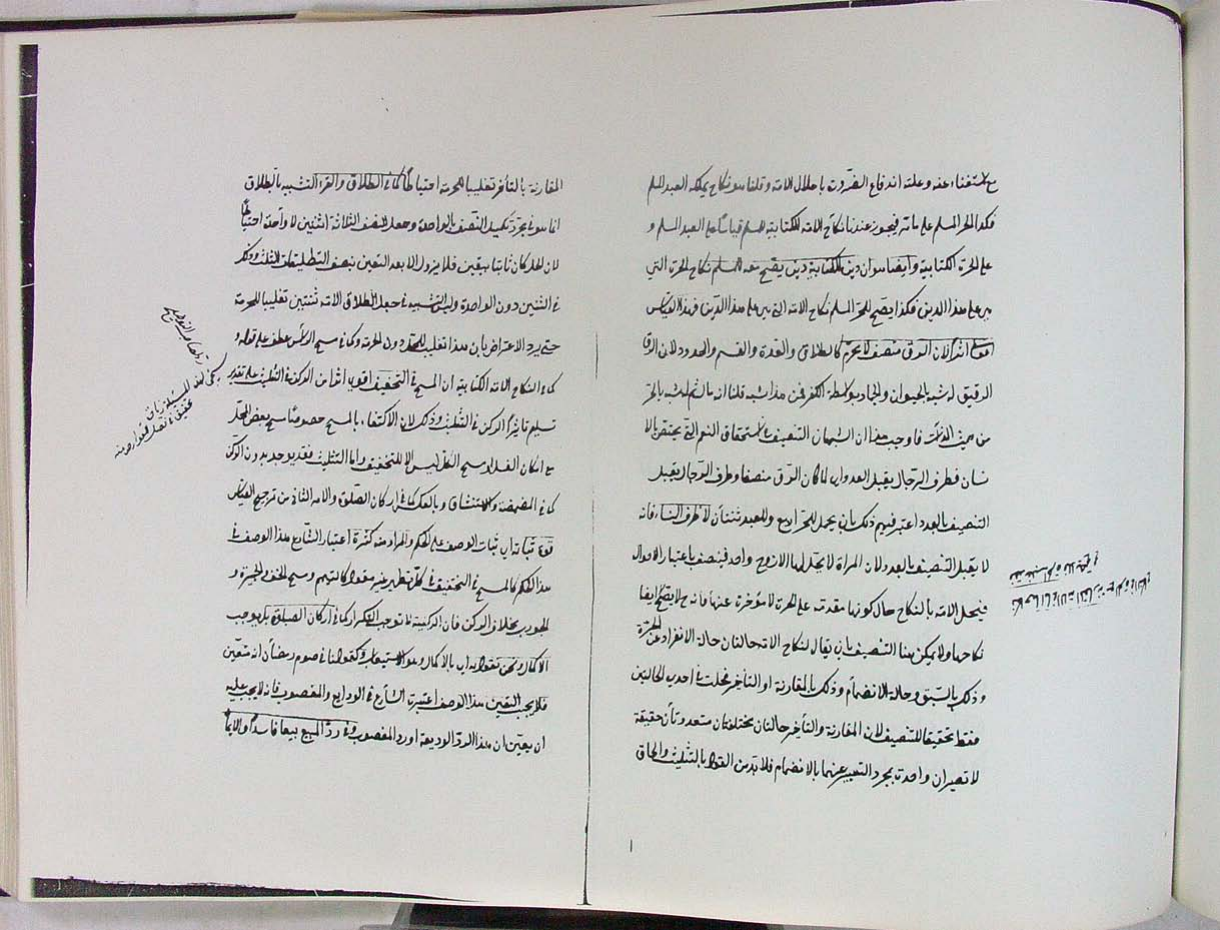 مع الاستغناء عنه وعلته اندفاع الضرورة باحلال الامة وقلنا هو نكاح يملكه العبد المسلم
فكذا الحر المسلم على ما مر فيجوز عندنا نكاح الامة الكتابية للمسلم قياسا على العبد المسلم و
على الحرة الكتابية وايضا هو ان دين الكتابية دين يصح معه للمسلم نكاح الحرة التي
هي على هذا الدين فكذا يصح للحر المسلم نكاح الامة التي هي على هذا الدين فهذا القياس
اقوى اثرا لان الرق منصف لا محرم كالطلاق والعدة والقسم والحدود لان
الرقيق له شبه بالحيوان والجماد بواسطة الكفر فمن هذا شبه قلنا انه مال ثم له شبه بالحر
من حيث الذات فاوجب هذا ان الشبهان التنصيف في استحقاق النعم التي يختص بالا
نسان فطرف الرجال يقبل العدد اي لما كان الرق منصفا وطرف الرجال يقبل
التنصيف بالعدد اعتبر فيهم ذلك بان يحل للحر اربع وللعبد ثنتان لا طرف النساء فانه
لا يقبل التنصيف بالعدد لان المراة لا يحل لها الا زوج واحد فينصف باعتبار الاحوال
فيحل الامة بالنكاح حال كونها مقدمة على الحرة لا مؤخرة عنها فانه ح لا يصح ايضا
نكاحها ولا يمكن هنا التنصيف بان يقال لنكاح الامة حالتان حالة الانفراد عن الحرة
وذلك بالسبق وحالة الانضمام وذلك بالمقارنة او التأخر فحلت في احدى الحالتين
فقط تحقيقا للتنصيف لان المقارنة والتأخر حالتان مختلفتان متعددتان حقيقة
لا تصيران واحدة بمجرد التعبير عنهما بالانضمام فلا بد من القول بالتثليث والحاق
المقارنة بالتأخر تغليبا للحرمة احتياطا كما في الطلاق والقرء التشبيه بالطلاق
انما هو في مجرد تكميل النصف بالواحدة وجعل نصف الثلاثة اثنين لا واحدة احتياطا
لان الحل كان ثابتا بيقين فلا يزول الا بعد التيقن بنصف التطليقات الثلث وذلك
في الثنتين دون الواحدة وليس التشبيه في جعل طلاق الامة ثنتين تغليبا للحرمة
حتى يرد الاعتراض بان هذا تغليب للحل دون الحرمة وكما في مسح الرأس عطف على قوله و
كما في نكاح الامة الكتابية ان المسح في التخفيف اقوى اثرا من الركن في التثليث على تقدير
تسليم تاثير الركن في التثليث وذلك لان الاكتفاء بالمسح خصوصا مسح بعض المحل
مع امكان الغسل او مسح الكل ليس الا للتخفيف واما التثليث فقد يوجد بدون الركن
كما في المضمضة والاستنشاق وبالعكس كما في اركان الصلوة والامر الثاني من ترجيح القياس
قوة ثباته اي ثبات الوصف على الحكم والمراد منه كثرة اعتبار الشارع هذا الوصف في
هذا الحكم كالمسح في التخفيف في كل تطهير غير معقول كالتيمم ومسح الخف والجبيرة و
الجورب بخلاف الركن فان الركنية لا توجب التكرار كما في اركان الصلوة بل يوجب
الاكمال ونحن نقول به اي بالاكمال وهو الاستيعاب وكقولنا في صوم رمضان انه متعين
فلا يجب التعيين هذا الوصف اعتبره الشارع في الودايع والمغصوب فانه لا يجب عليه
ان يعين ان هذا الرد الوديعة او رد المغصوب وفي رد المبيع بيعا فاسدا والايما